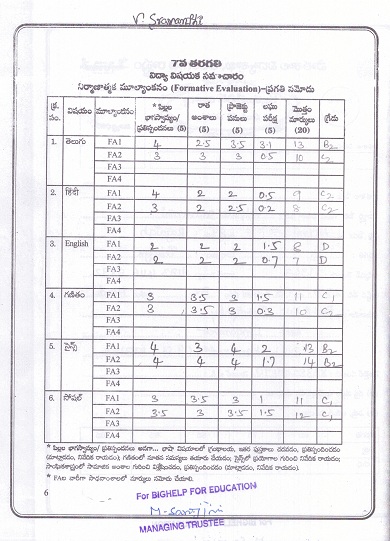 V. Sravanthi
7వ తరగతి
విద్యా విషయక సమాచారం
నిర్మాణాత్మక మూల్యాంకనం (Formative Evaluation)–ప్రగతి నమోదు
క్ర. సం. విషయం మూల్యాంకనం * పిల్లల భాగస్వామ్యం/ ప్రతిస్పందనలు (5) రాత అంశాలు (5) ప్రాజెక్టు పనులు (5) లఘు పరీక్ష (5) మొత్తం మార్కులు (20) గ్రేడు
1. తెలుగు FA1 4 2.5 3.5 3.1 13 B2
FA2 3 3 3 0.5 10 C2
FA3
FA4
2. హిందీ FA1 4 2 2 0.5 9 C2
FA2 3 2 2.5 0.2 8 C2
FA3
FA4
3. English FA1 2 2 2 1.5 8 D
FA2 2 2 2 0.7 7 D
FA3
FA4
4. గణితం FA1 3 3.5 3 1.5 11 C1
FA2 3 3.5 3 0.3 10 C2
FA3
FA4
5. సైన్స్ FA1 4 3 4 2 13 B2
FA2 4 4 4 1.7 14 B2
FA3
FA4
6. సోషల్ FA1 3 3.5 3 1 11 C1
FA2 3.5 3 3.5 1.5 12 C1
FA3
FA4
* పిల్లల భాగస్వామ్యం/ ప్రతిస్పందనలు అనగా... భాషా విషయాలలో గ్రంథాలయ, ఇతర పుస్తకాలు చదవడం, ప్రతిస్పందించడం
(మాట్లాడడం, నివేదిక రాయడం); గణితంలో నూతన సమస్యలు తయారు చేయడం; సైన్స్‌లో ప్రయోగాల గురించి నివేదిక రాయడం;
సాంఘికశాస్త్రంలో సామాజిక అంశాల గురించి విశ్లేషించడం, ప్రతిస్పందించడం (మాట్లాడడం, నివేదిక రాయడం).
* FAల వారీగా సాధనాంశాలలో మార్కులు నమోదు చేయాలి.
6
For BIGHELP FOR EDUCATION
M. Sarojini
MANAGING TRUSTEE